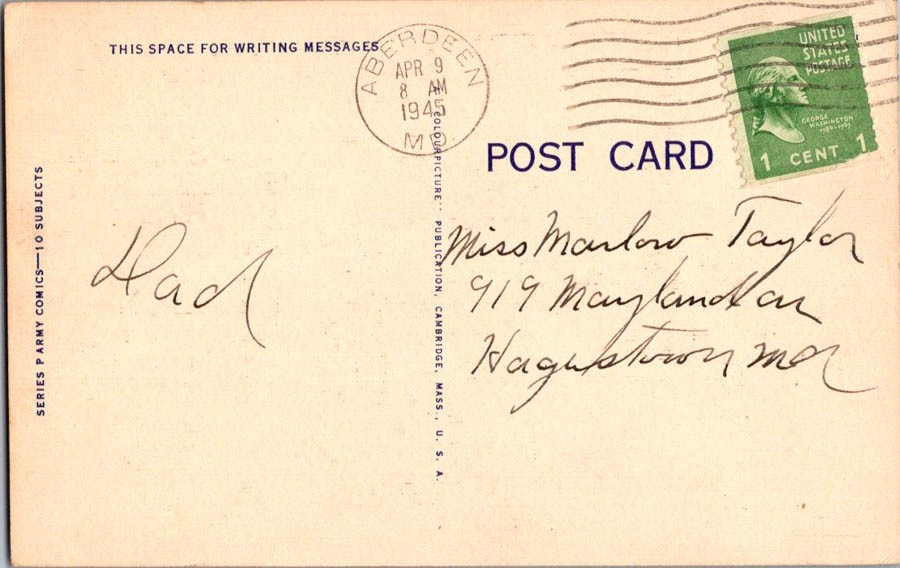 THIS SPACE FOR WRITING MESSAGES
ABERDEEN
APR 9
8 AM
1945
MD.
UNITED
STATES
POSTAGE
GEORGE
WASHINGTON
1789-1797
1 CENT 1
POST CARD
SERIES P ARMY COMICS—10 SUBJECTS
"COLOURPICTURE" PUBLICATION, CAMBRIDGE, MASS., U. S. A.
Dad
Miss Marlow Taylor
919 Maryland av
Hagerstown Md